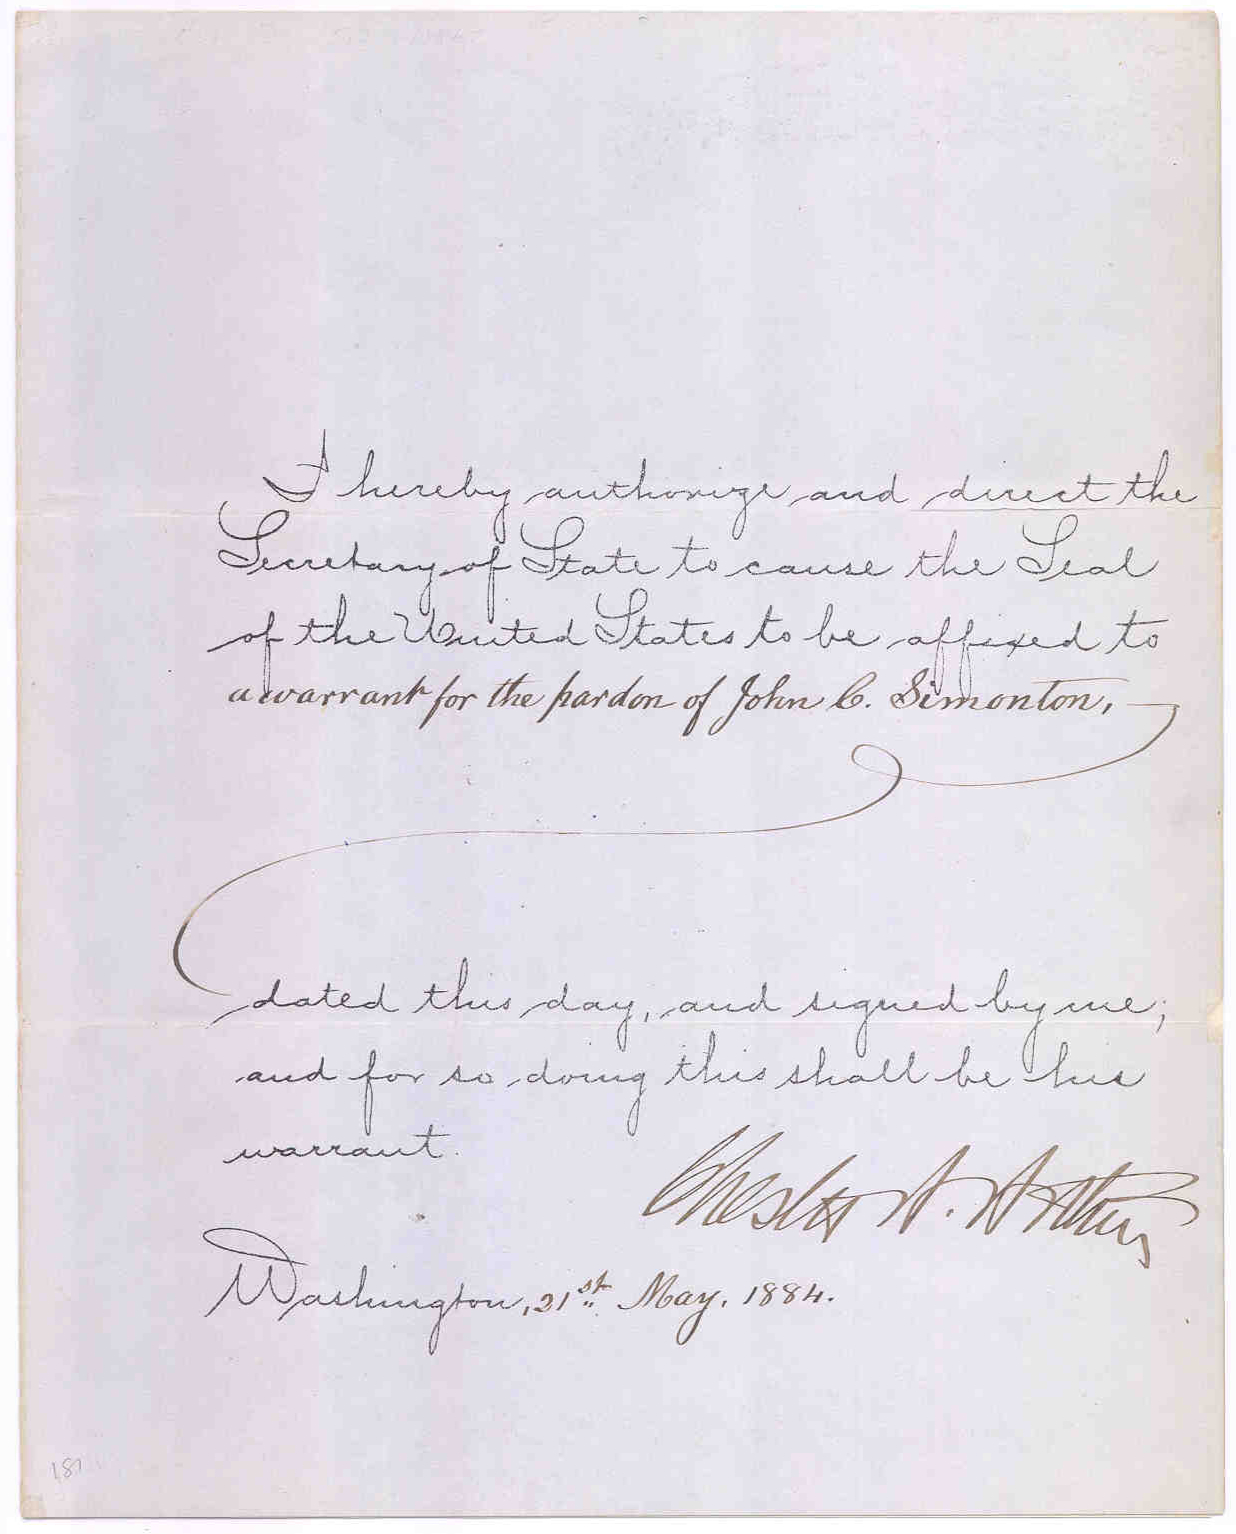 I hereby authorize and direct the
Secretary of State to cause the Seal
of the United States to be affixed to
a warrant for the pardon of John C. Simonton,
dated this day, and signed by me;
and for so doing this shall be his
warrant.
Chester A. Arthur
Washington, 21st May, 1884.
187